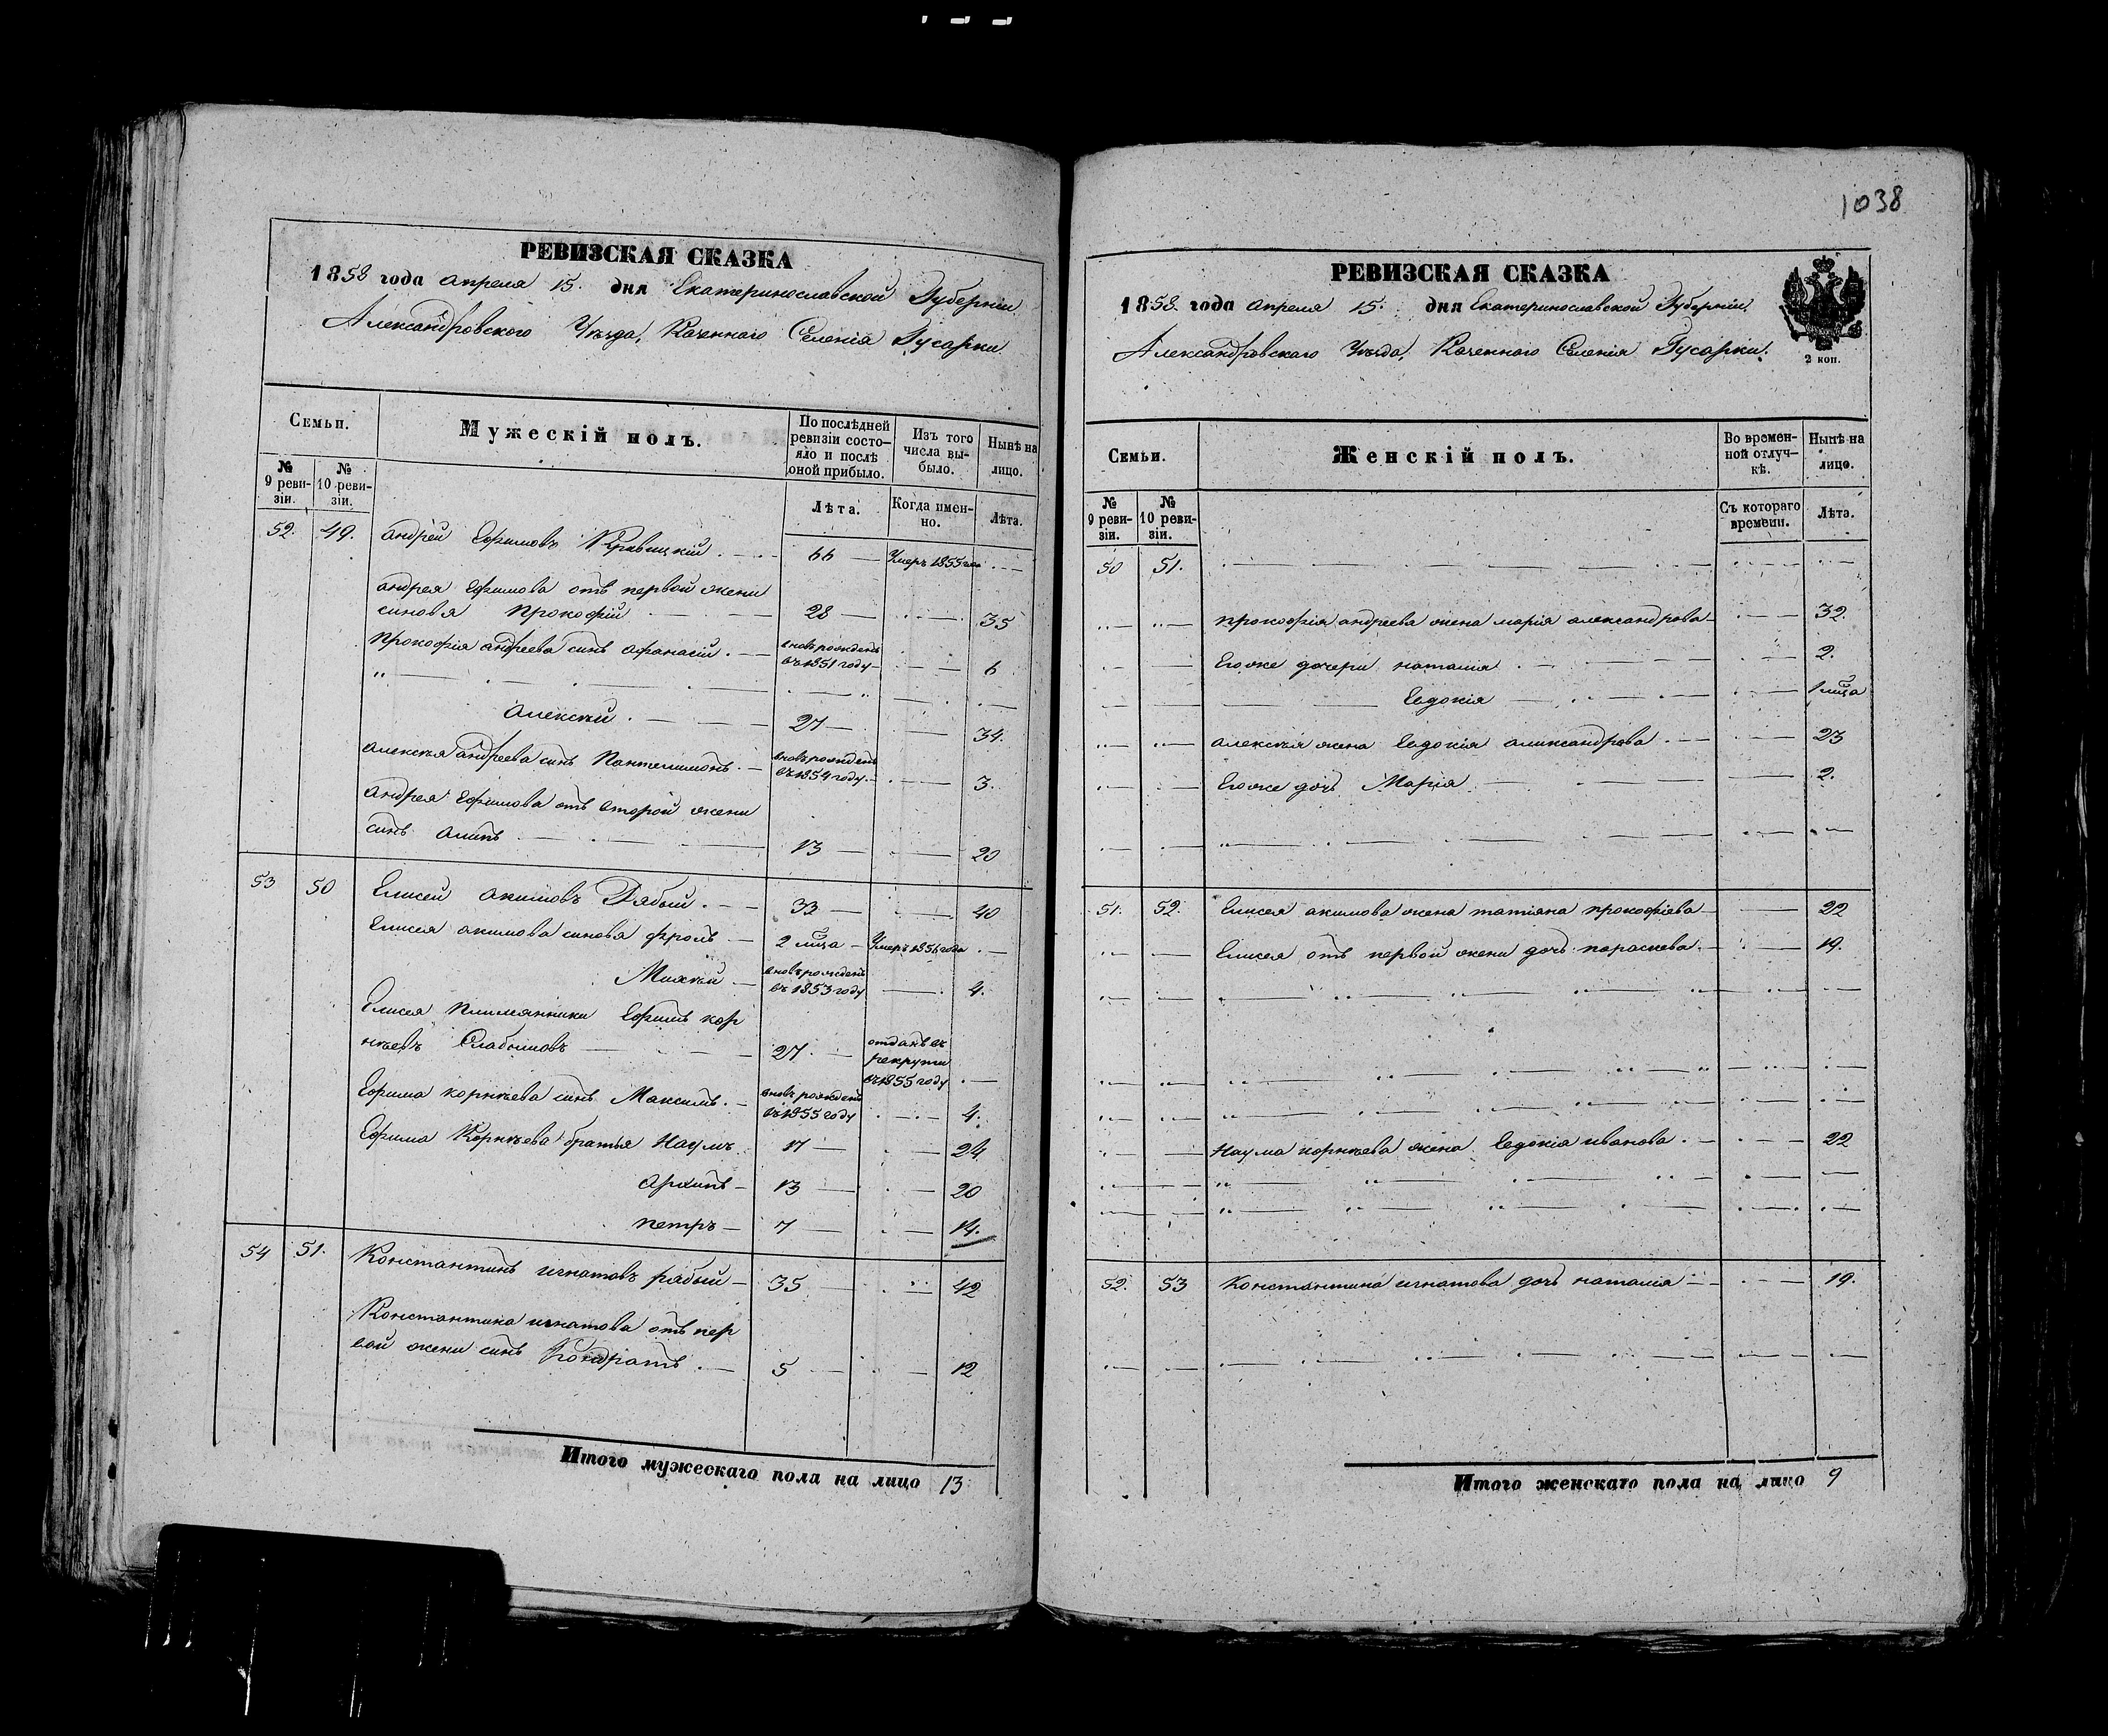 РЕВИЗСКАЯ СКАЗКА
1858 года апреля 15. дня Екатеринославской Губерніи
Александровского Уѣзда, Казеннаго Селенія Гусарки
Семьи.
Мужескій полъ.
По послѣдней ревизіи состо-
яло и послѣ
оной прибыло.
Изъ того
числа вы-
было.
Нынѣ на
лицо.
№
9 реви-
зіи.
№
10 реви-
зіи.
Лѣта.
Когда имен-
но.
Лѣта.
52. 49. Андрей Ефимовъ Кравицкій 66 Умеръ 1855 года
андрея Ефимова отъ первой жены
синовя прокофій 28 35
прокофія андреева синъ афанасій вновь рожденъ
въ 1851 году 6
алексѣй 27 34.
алексѣя андреева синъ Пантелимонъ вновь рожденъ
въ 1854 году 3.
андрея Ефимова отъ второй жени
синъ алипъ 13 20
53 50 Елисей акимовъ Рябый 33 40
Елисея акимова синовя фролъ 2 мца Умеръ 1856 года
Михѣй вновь рожденъ
въ 1853 году 4.
Елисея племянники Ефимъ кор
нѣевъ Слабымовъ 27 отданъ въ
рекруты
въ 1855 году
Ефима корнѣева синъ Максимъ вновь рожденъ
въ 1855 году 4.
Ефима Корнѣева братья Наумъ 17 24
архипъ 13 20
петръ 7 14.
54 51. Константинъ игнатовъ рябый 35 42
Константина игнатова отъ пер
вой жени синъ Кондратъ 5 12
Итого мужескаго пола на лицо 13
1038
РЕВИЗСКАЯ СКАЗКА
1858 года апреля 15. дня Екатеринославской Губерніи
Александровскаго Уѣзда, Казеннаго Селенія Гусарки.
2 коп.
Семьи.
Женскій полъ.
Во времен-
ной отлуч-
кѣ.
Нынѣ на
лицо.
№
9 реви-
зіи.
№
10 реви-
зіи.
Съ котораго
времени.
Лѣта.
50 51.
прокофія андреева жена марія александрова 32.
Его же дочери наталия 2.
Евдокія 1 мца
алексѣя жена Евдокія александрова 23
Его же дочь Марія 2.
51. 52. Елисея акимова жена татіяна прокофіева 22
Елисея отъ первой жени дочь параскева 19.
Наума корнѣева жена Евдокія иванова 22
52. 53 Константина игнатова дочь наталія 19.
Итого женскаго пола на лицо 9